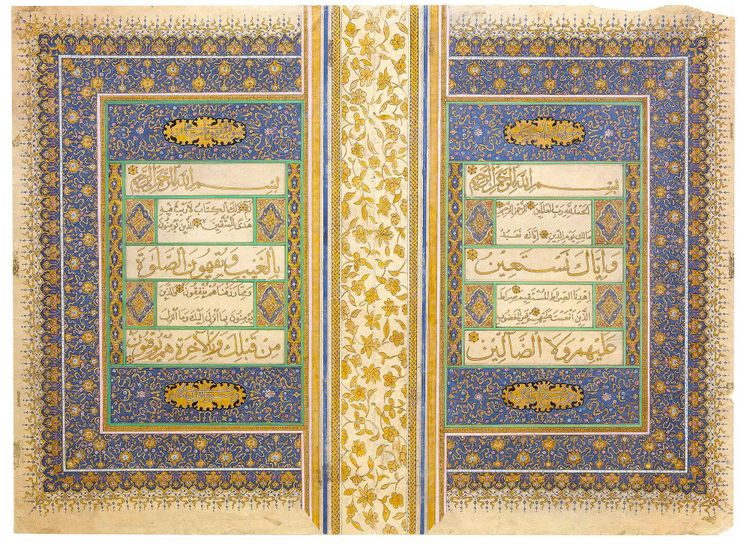 بسم الله الرحمن الرحيم
الحمد لله رب العالمين الرحمن الرحيم
مالك يوم الدين اياك نعبد
واياك نستعين
اهدنا الصراط المستقيم صراط
الذين انعمت عليهم غير المغضوب
عليهم ولا الضالين
بسم الله الرحمن الرحيم
ذلك الكتاب لا ريب فيه
هدى للمتقين الذين يؤمنون
بالغيب ويقيمون الصلوة
ومما رزقناهم ينفقون والذين
يؤمنون بما انزل اليك وما انزل
من قبلك وبالاخرة هم يوقنون